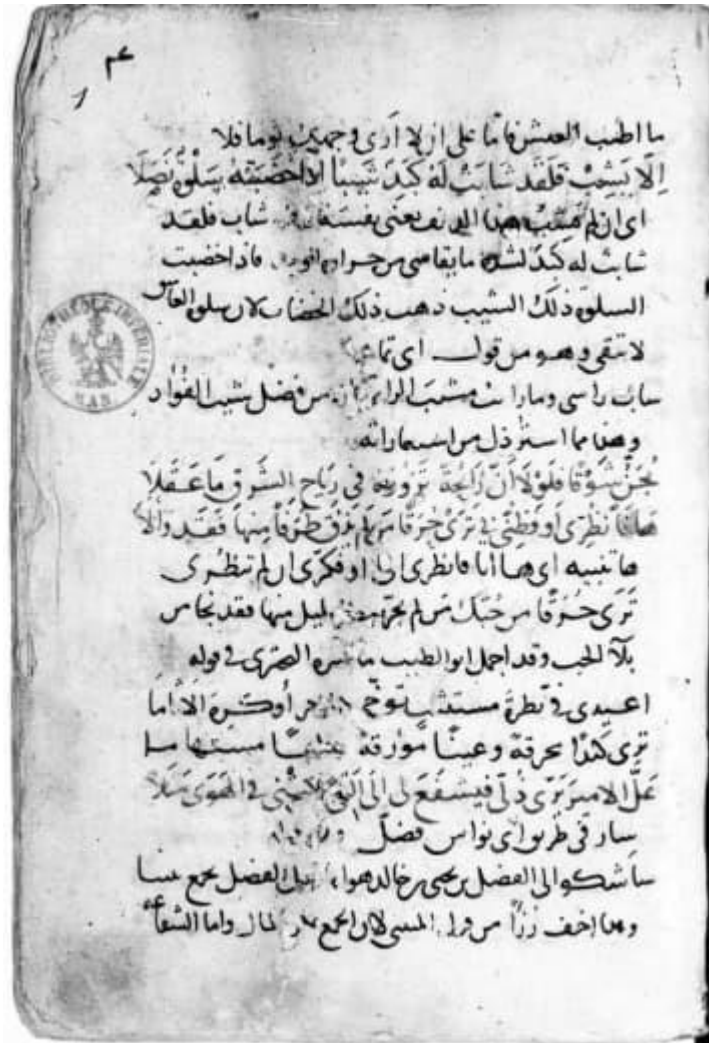 ما اطيب العيش فاما على ان لا ارى وجهك يوما فلا
إلّا يَشِبْ فَلَقَد شَابَتْ لَهُ كَبِدٌ شَيْبًا اذا خَضَبَتْهُ سَلْوَةٌ نَصَلَا
اى ان لم يشب هذا يعنى نفسه شاب فلقد
شابت له كبد لشدة ما يقاسى من حرارة فاذا خضبت
السلوة ذلك الشيب ذهب ذلك الخضاب لان سلوة العاشق
لا تبقى وهو من قول ابى تمام
شاب راسى وما رايت مشيب الراس الا من فضل شيب الفواد
وهذا مما استرذل من استعاراته
يُجَنُّ شَوْقًا فَلَوْلَا أَنَّ رَائِحَةً تَزُورُهُ فِى رِيَاحِ الشَّرْقِ مَا عَقَلَا
هَا فَانْظُرِى أو فَظُنِّى بِى تَرَىْ حُرَقًا مَنْ لَمْ يَذُقْ طَرَفًا مِنْهَا فَقَدْ وَأَلَا
ها تنبيه اى ها انا فانظرى الى او فكرى ان لم تنظرى
تَرَىْ حُرَقًا من حُبّك مَن لم يجرب القليل منها فقد نجا من
بلاء الحب وقد اجمل ابو الطيب ما فسره البحترى فى قوله
اعيدى فىّ نظرة مستثيب توخّى الاجر أو كره الاثاما
ترى كبدًا محرقة وعينًا مؤرقة وقلبًا مستهاما
عَلَّ الامِيرَ يَرَى ذُلِّى فَيَشْفَعَ لِى إلَى الَّتِى تَرَكَتْنِى فِى الهَوَى مَثَلَا
سار فى طريق ابى نواس فضلّ
ساشكو الى الفضل بن يحيى بن خالد هواك لعل الفضل يجمع بيننا
وهذا اخف رُزْاً من قول المتنبى لان الجمع بالمال واما الشفاعة
BIBLIOTHEQUE IMPERIALE
MAN